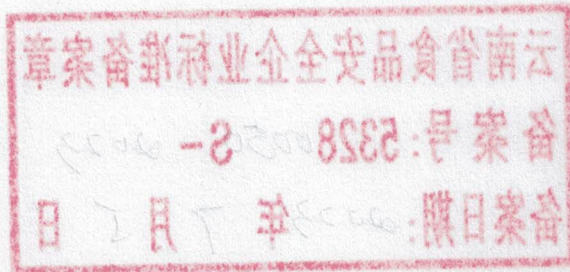 云南省食品安全企业标准备案章
备案号: 5328 S- 2023
备案日期: 2023 年 7 月 5 日